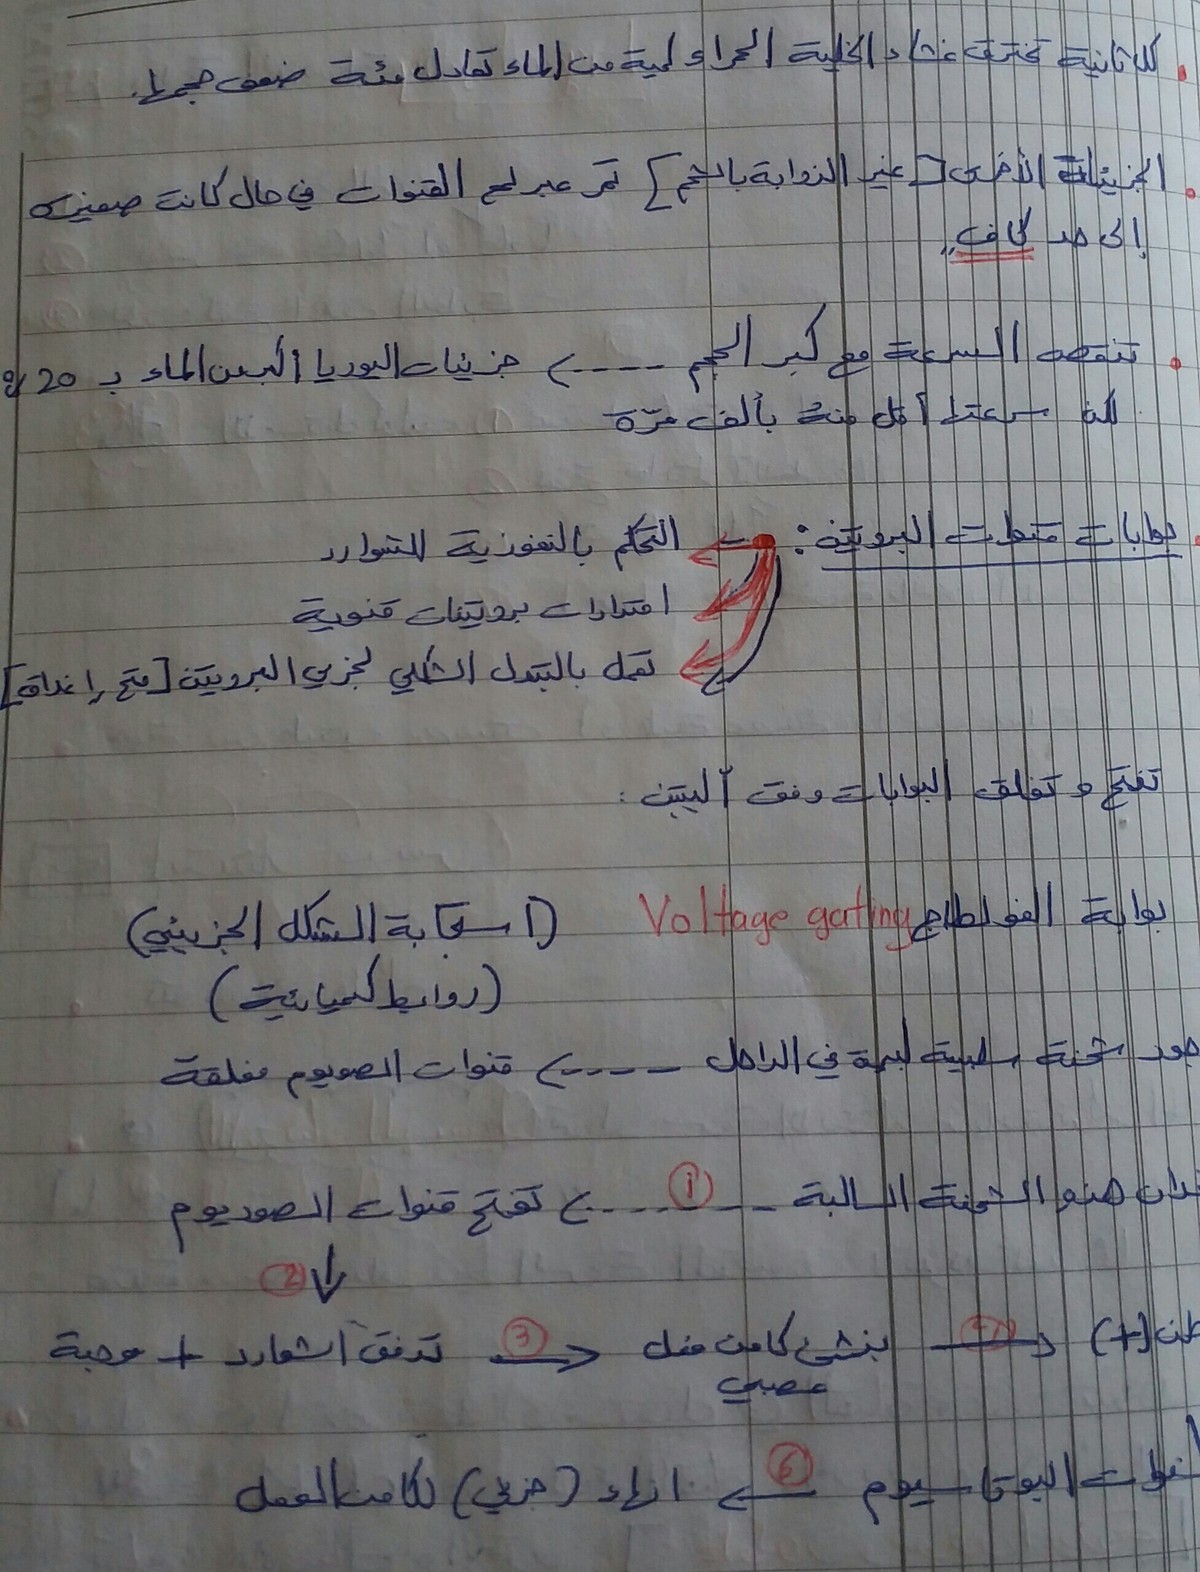 . كل ثانية تخترق غشاء الخلية الحمراء كمية من الماء تعادل مئة ضعف حجمها.
. الجزيئات الأخرى [غير الذوابة بالشحم] تمر عبر لمع القنوات في حال كانت صغيرة
إلى حد كاف ,,
. تنقص السرعة مع كبر الحجم ----> جزيئات اليوريا أكبر من الماء بـ 20 %
لكن سرعتها أقل منه بألف مرة
. بوابات قنوات البروتين: ← التحكم بالنفوذية للشوارد
امتدادات بروتينات قنوية
تعمل بالتبدل الشكلي لجزيء البروتين [فتح, إغلاق]
تفتح و تغلق البوابات وفق آليتين :
بوابة الفولطاج Voltage gating (استجابة الشكل الجزيئي)
(روابط كيميائية)
شحنة سلبية كبيرة في الداخل ----> قنوات الصوديوم مغلقة
هذه الشحنة السالبة --①--> تفتح قنوات الصوديوم
② ↓
تدفق الشوارد + موجبة ③ → ينشئ كامن فعل → (+)
عصبي
البوتاسيوم ⑥ ← انهاء (جزئي) لكامن العمل